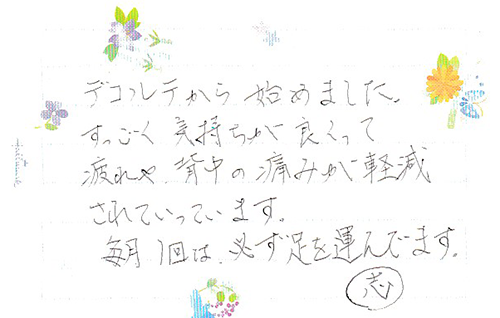 デコルテから始めました。
すっごく気持ちが良くって
疲れや背中の痛みが軽減
されていっています。
毎月1回は、必ず足を運んでます。
志